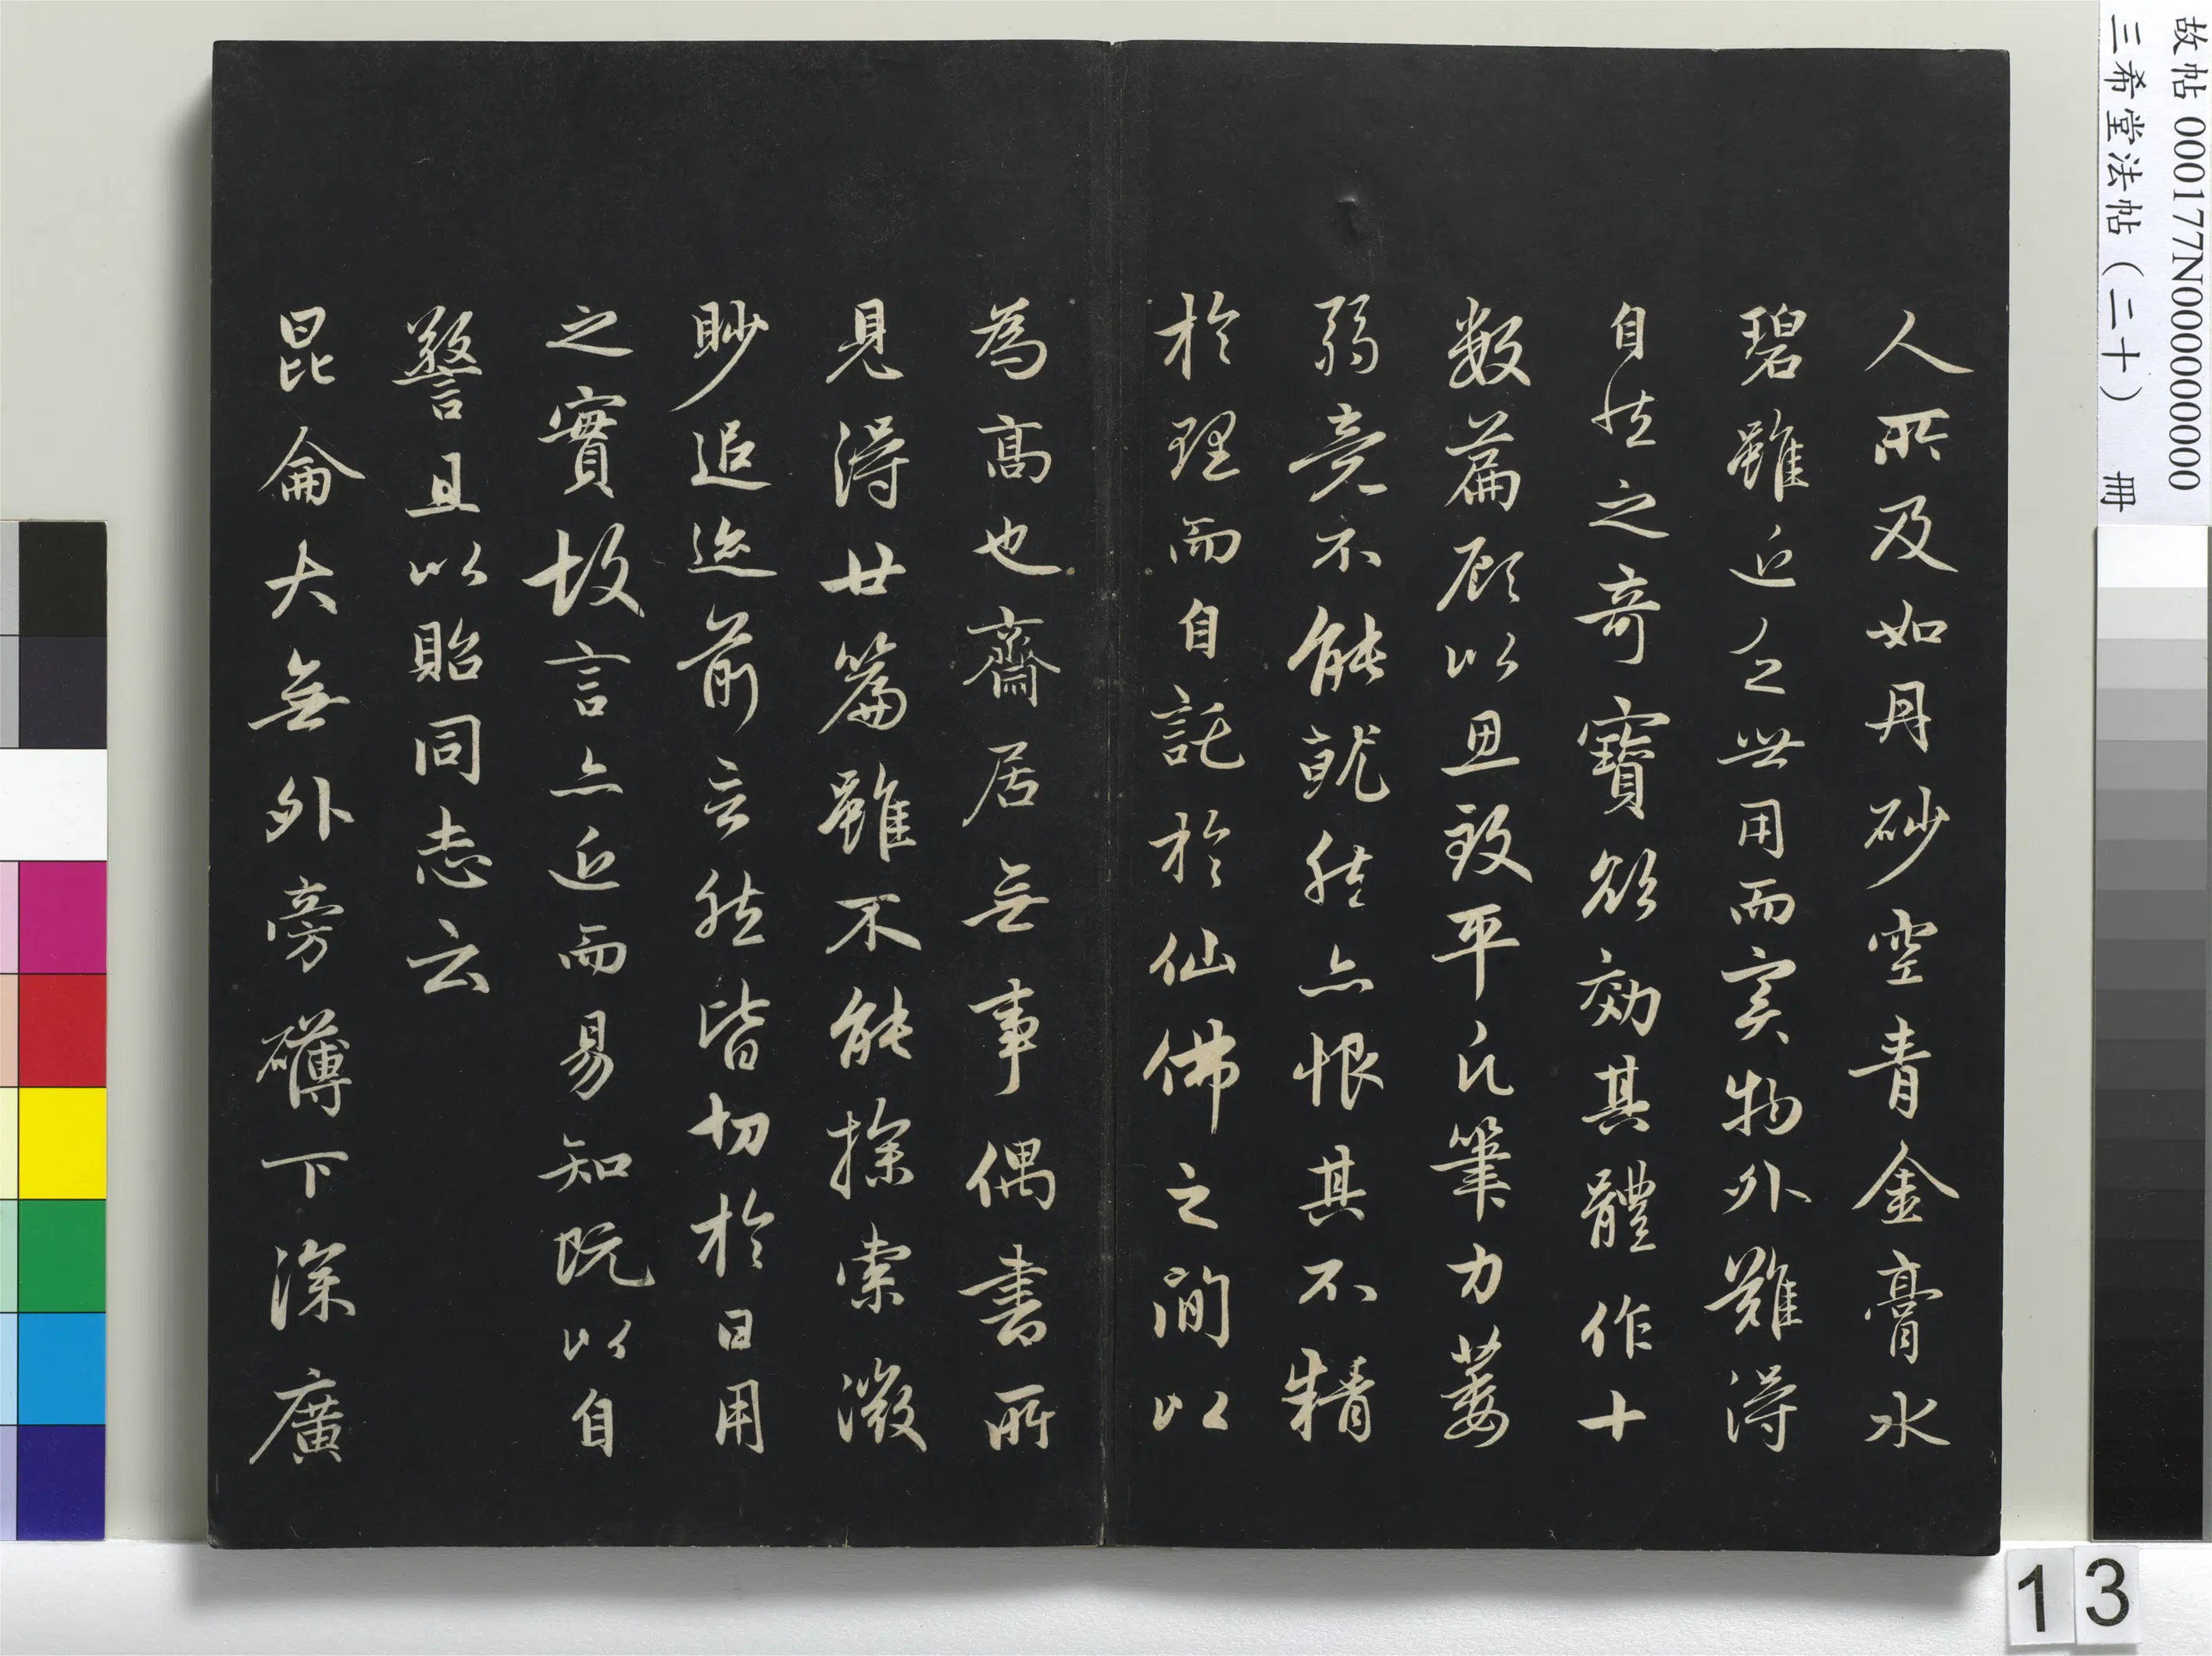 人所及如丹砂空青金膏水
碧雖近乏世用而實物外難得
自然之奇寶欲効其體作十
數篇顧以思致平凡筆力萎
弱竟不能就然亦恨其不精
於理而自託於仙佛之間以
為高也齋居無事偶書所
見得廿篇雖不能探索微
眇追迹前言然皆切於日用
之實故言亦近而易知既以自
警且以貽同志云
昆侖大無外旁礴下深廣
故帖 000177N000000000
三希堂法帖（二十） 冊
13